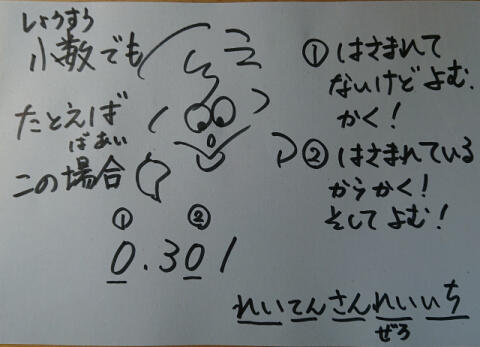 しょうすう
小数でも
たとえば
ばあい
この場合
① はさまれて
ないけどよむ.
かく!
② はさまれている
からかく!
そしてよむ!
① ②
0.301
れいてんさんれいいち
ぜろ